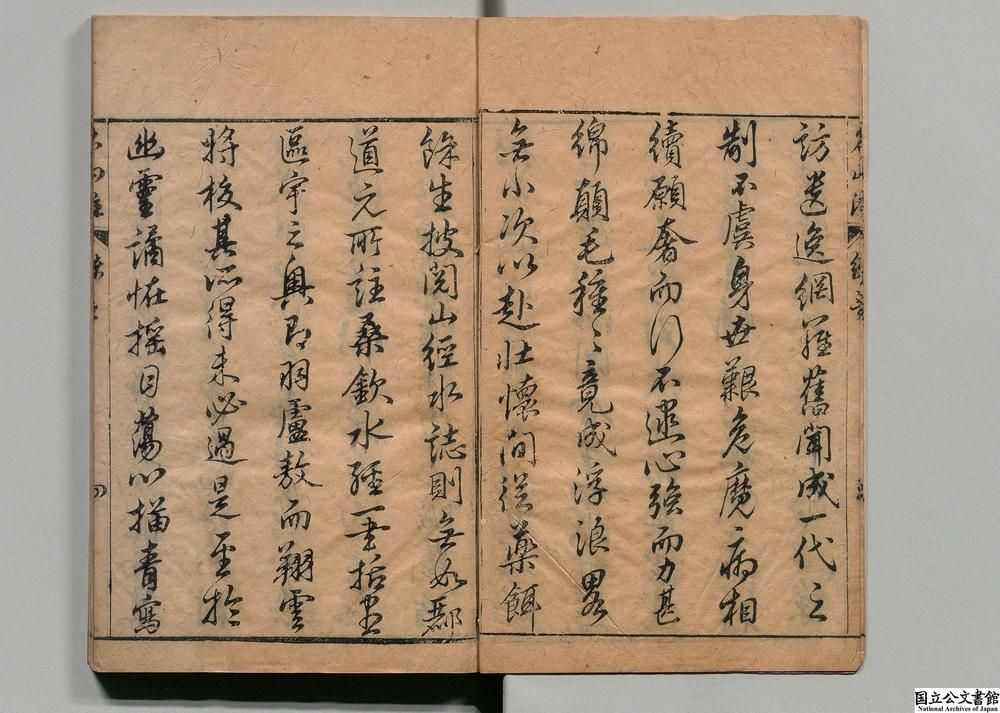 訪遺逸網羅舊聞成一代之
制不虞身世艱危魔病相
續願奢而行不逮心強而力甚
綿顛毛種〻竟成浮浪畧
無小次以赴壯懷間從藥餌
餘生披閱山經水誌則無如酈
道元所註桑欽水經一書括盡
區宇之奧即羽廬敖而翔雲
將校其所得未必過是至於
幽靈譎怪搖目蕩心描青寫
四
国立公文書館
National Archives of Japan